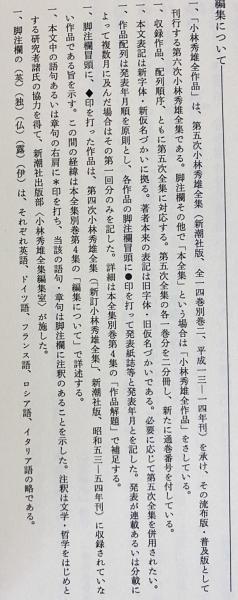 編集について
一、『小林秀雄全作品』は、第五次小林秀雄全集（新潮社版、全一四巻別巻二、平成一三―一四年刊）を承け、その流布版・普及版として
刊行する第六次小林秀雄全集である。脚注欄その他で「本全集」という場合は『小林秀雄全作品』をさしている。
一、収録作品、配列順序、ともに第五次全集に対応する。第五次全集の各一巻分を二分冊し、新たに通巻番号を付している。
一、本文表記は新字体・新仮名づかいに拠る。著者本来の表記は旧字体・旧仮名づかいである。必要に応じて第五次全集を併用されたい。
一、作品配列は発表年月順を原則とし、各作品の脚注欄冒頭に●印を打って発表紙誌等と発表年月とを記した。発表が連載あるいは分載に
よって複数月に及んだ場合はその第一回分のみを記した。詳細は本全集別巻第4集の「作品解題」で補足する。
一、脚注欄冒頭に、◆印を打った作品は、第四次小林秀雄全集（「新訂小林秀雄全集」、新潮社版、昭和五三―五四年刊）に収録されていな
い作品である旨を示す。この間の経緯は本全集別巻第4集の「編集について」で詳述する。
一、本文中の語句あるいは章句の右肩に＊印を打ち、当該の語句・章句は脚注欄に注釈のあることを示した。注釈は文学・哲学をはじめと
する研究者諸氏の協力を得て、新潮社出版部〈小林秀雄全集編集室〉が施した。
一、脚注欄の（英）（独）（仏）（露）（伊）は、それぞれ英語、ドイツ語、フランス語、ロシア語、イタリア語の略である。